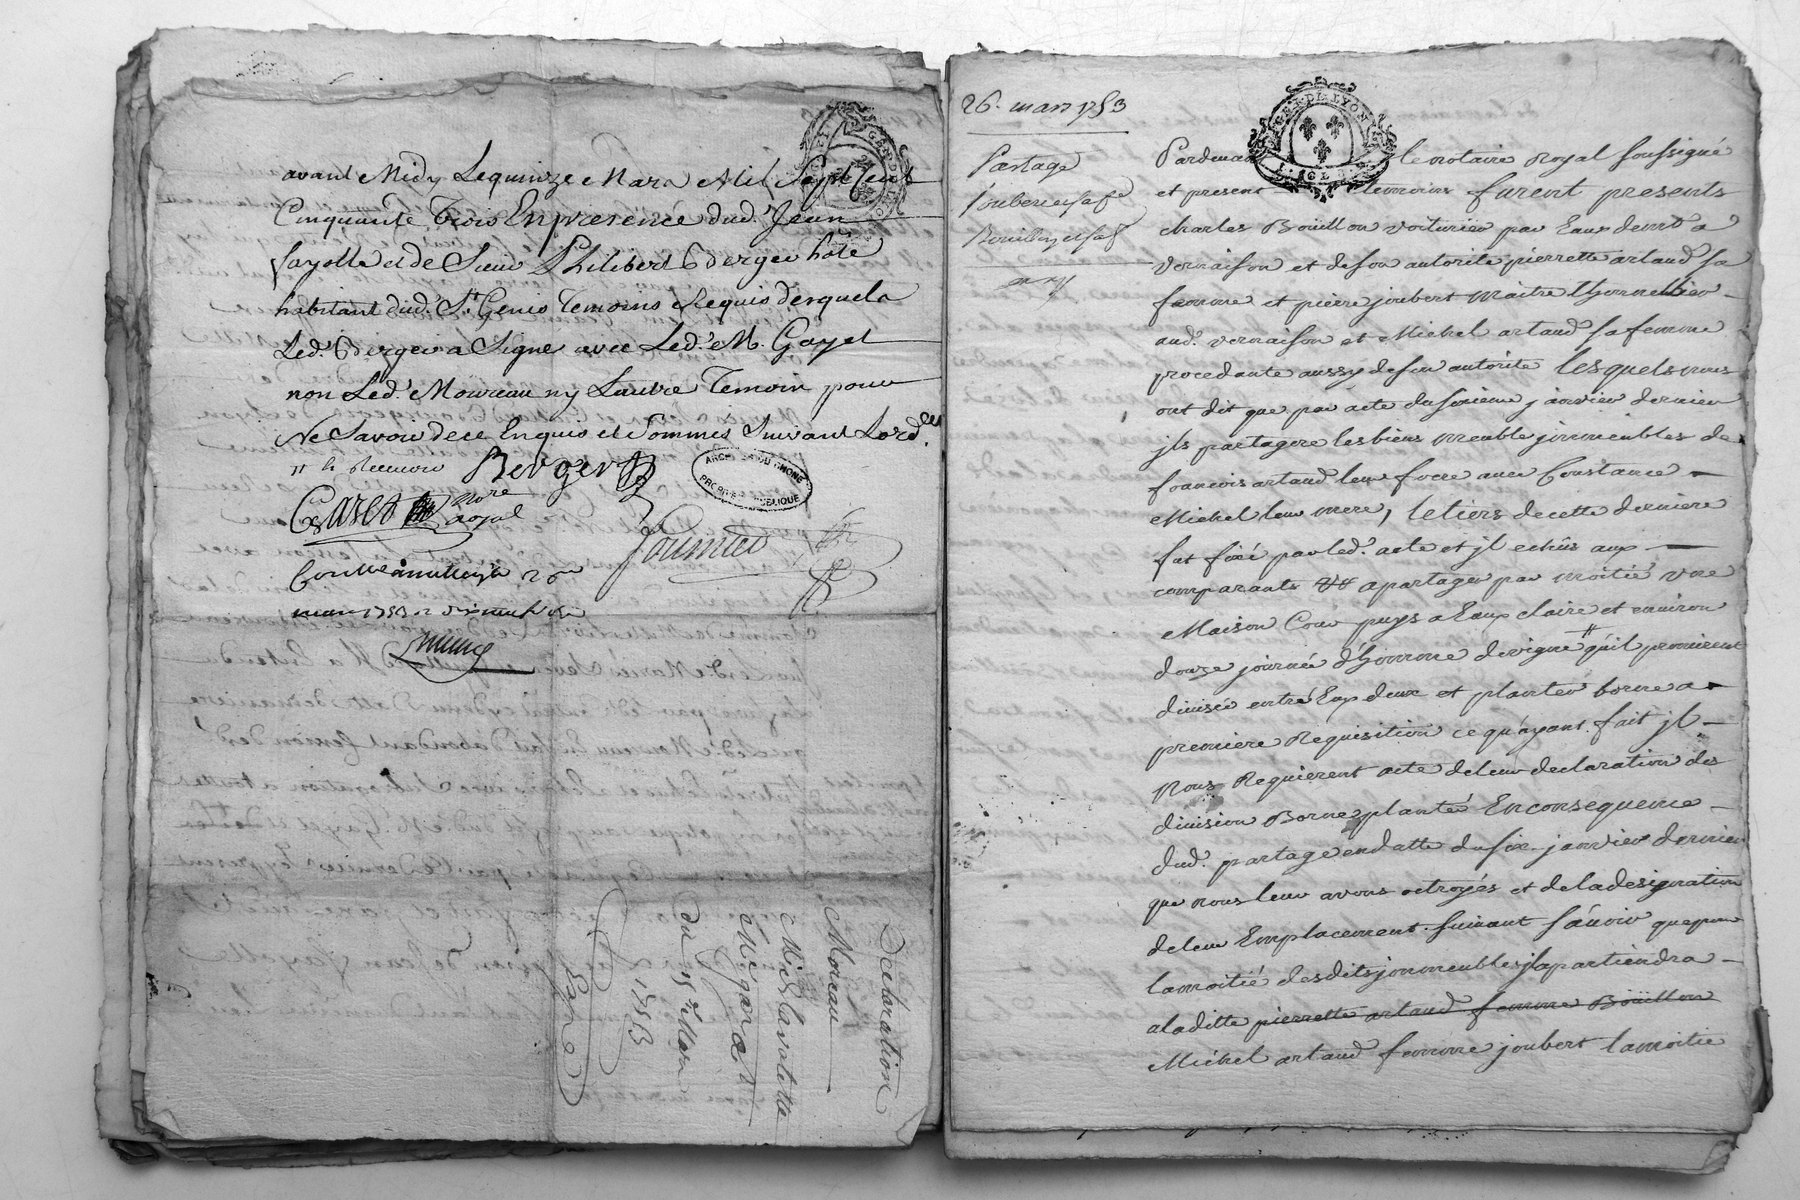 avant Midy Le quinze Mars Mil Sept Cent
Cinquante Trois En presence dud. Jean
fayolle et de Sieur Philibert Berger hôte
habitant dud. St. Genis Temoins Requis desquels
Led. Berger a Signé avec Led. M. Gayet
non Led. Moureau ny Lautre Temoin pour
Ne Savoir de ce Enquis et Sommés Suivant Lord.ce
Berger
Gayet no.re
royal
Fournier
ARCH DU RHONE
PROPRIETE PUBLIQUE
mars 1753
Declaration
Moreau
Michel
du 15 Mars
1753
26. mars 1753
Partage
Joubert et sa fe
Bouillon et sa f
GEN. DE LYON
Pardevant le notaire royal soussigné
et present temoins furent presents
charles Boüillon voiturier par Eaux demt a
vernaison et de son autorité pierrette artaud sa
femme et pierre joubert maitre
aud. vernaison et Michel artaud sa femme
procedante aussy de son autorité lesquels nous
ont dit que par acte du sixieme janvier dernier
jls partagere les biens meuble jmmeubles de
francois artaud leur frere avec Constance
Michel leur mere, le tiers de cette derniere
fut fixé par led. acte et jl echûs aux
comparants a partager par moitié une
Maison Cour puys a Eaux claire et environ
douze journée d'homme de vigne qu'il promirent
divisé entre Eux deux et planter borne a
premiere Requisition ce qu'ayant fait jl
Nous Requierent acte de leur declaration des
division Borne planté En consequence
dud. partage en datte du six janvier dernier
que nous leur avons octroyés et de la designation
de leur Emplacement suivant sçavoir que pour
la moitié desdits jmmeubles jl apartiendra
a laditte pierrette artaud femme Boüillon
Michel artaud femme joubert la moitie